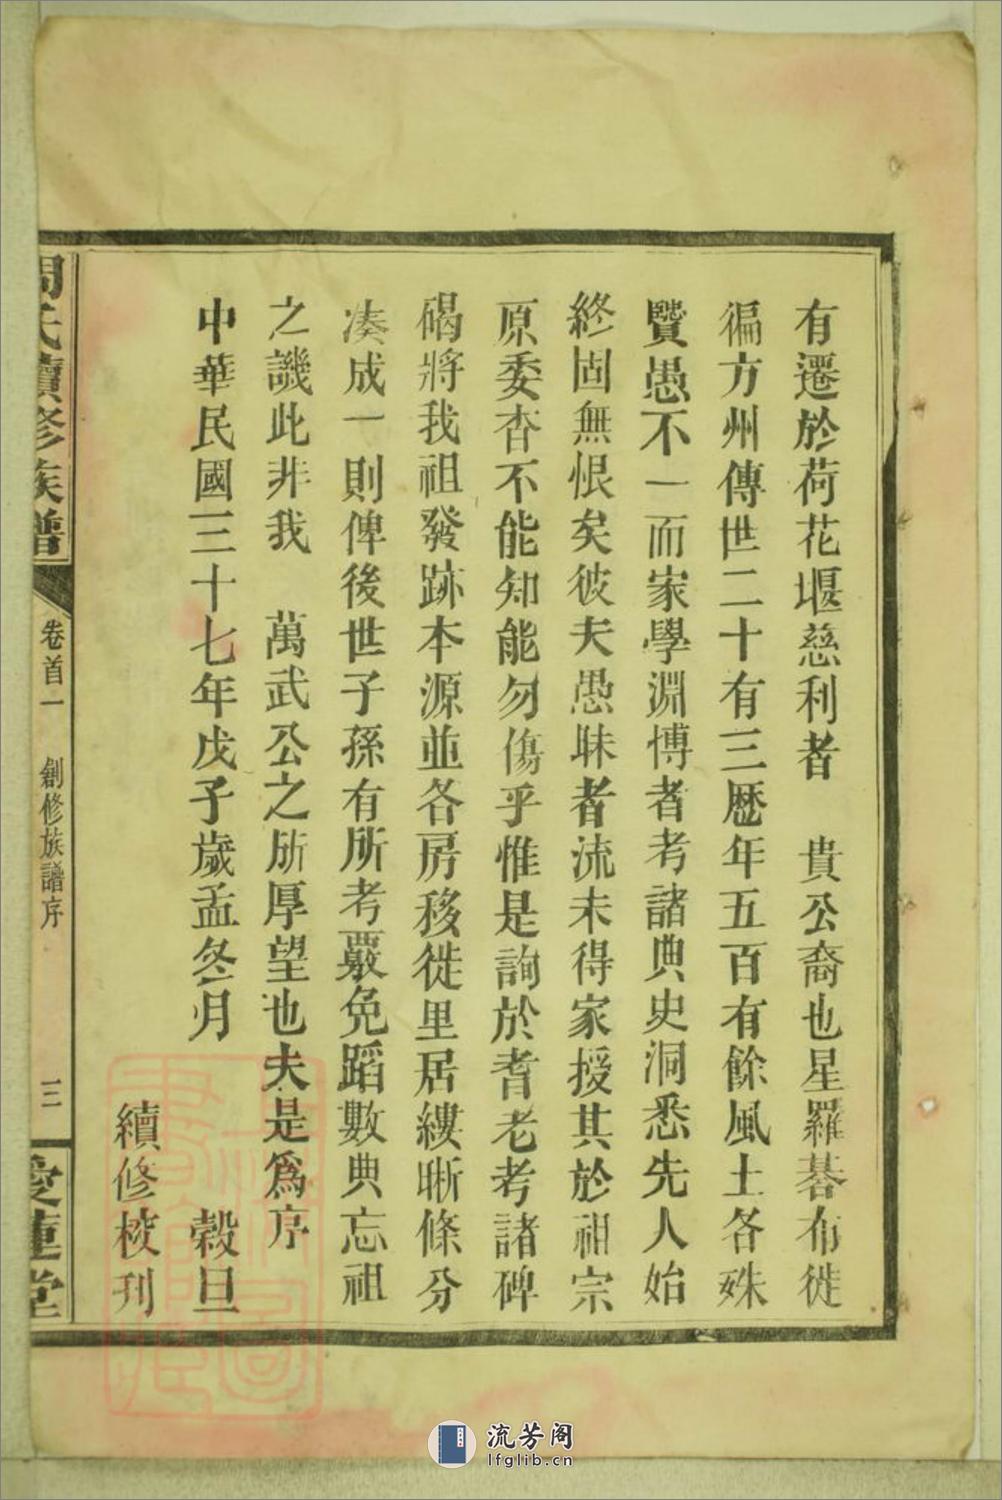 有遷於荷花堰慈利者　貴公裔也星羅碁布徙
徧方州傳世二十有三歷年五百有餘風土各殊
贒愚不一而家學淵博者考諸典史洞悉先人始
終固無恨矣彼夫愚昧者流未得家授其於祖宗
原委杳不能知能勿傷乎惟是詢於耆老考諸碑
碣將我祖發跡本源並各房移徙里居縷晰條分
凑成一則俾後世子孫有所考覈免蹈數典忘祖
之譏此非我　萬武公之所厚望也夫是爲序
中華民國三十七年戊子歲孟冬月　穀旦
續修校刊
周氏續修族譜
卷首一　創修族譜序
三
愛蓮堂
流芳阁
lfglib.cn